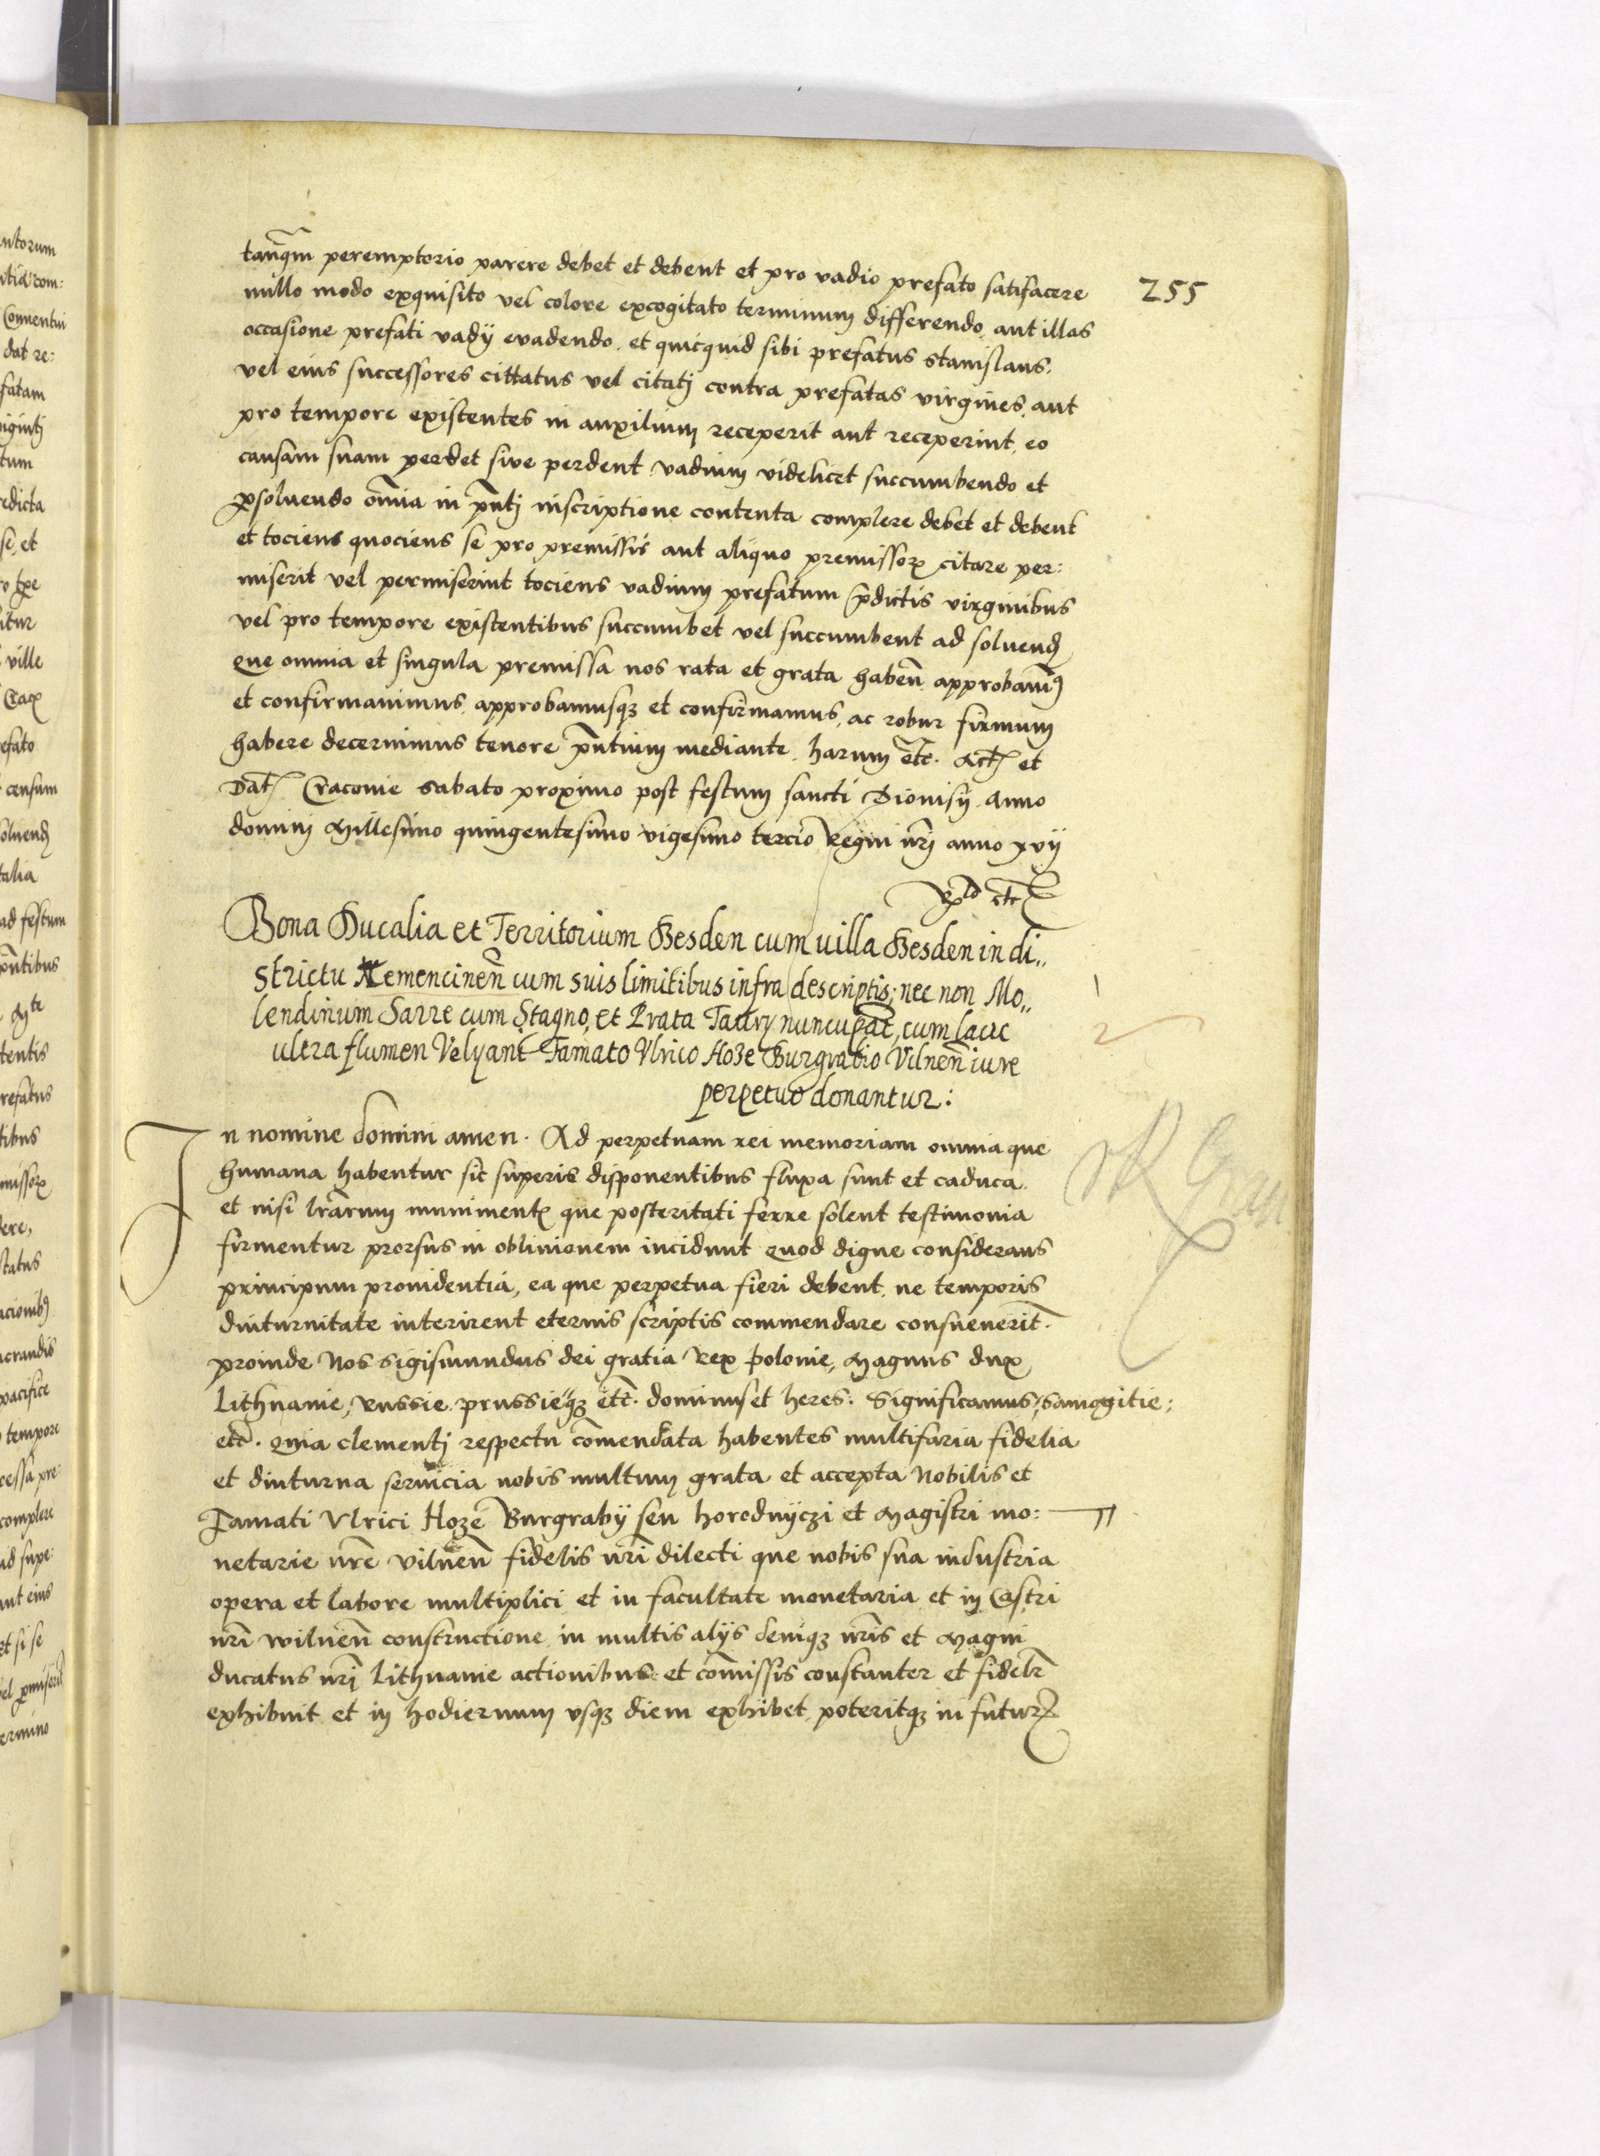 255
tanq̃m peremptorio parere debet et debent et pro vadio prefato satisfacere
nullo modo exquisito vel colore excogitato terminum differendo, aut illas
occasione prefati vadij evadendo, et quicquid sibi prefatus stanislaus,
vel eius successores cittatus vel citatj contra prefatas virgines, aut
pro tempore existentes in auxilium receperit aut receperint, eo
causam suam perdet sive perdent vadium videlicet succumbendo et
ꝑsoluendo om̃ia in p̃ntj inscriptione contenta complere debet et debent
et tociens quociens se pro premissis aut aliquo premissorꝝ citare per:
miserit vel permiserint tociens vadium prefatum p̃dictis virginibus
vel pro tempore existentibus succumbet vel succumbent ad soluend
Que omnia et singula premissa nos rata et grata haben̄ approbam9
et confirmauimus, approbamusqꝫ et confirmamus, ac robur firmum
habere decernimus tenore p̃ntium mediante. harum etc̃. Act et
Dat Cracouie sabato proximo post festum sancti Dionisij Anno
dominj Millesimo quingentesimo vigesimo tercio Regni nr̃j anno xvij
Bona Ducalia et Territorium Besden cum uilla Besden in di,,
strictu Nemencinen̄ cum suis limitibus infra descriptis; nec non Mo,,
lendinum Sarre cum Stagno, et Prata Taury nuncupat, cum lacu
ultra flumen Velyant Famato Vlrico Hoze Burgrabio Vilnen̄ iure
perpetuo donantur:
In nomine domini amen. Ad perpetuam rei memoriam omnia que
humana habentur sic superis disponentibus fluxa sunt et caduca
et nisi lr̃arum munimentꝭ que posteritati ferre solent testimonia
firmentur prorsus in obliuionem incidunt Quod digne considerans
principum prouidentia, ea que perpetua fieri debent, ne temporis
diuturnitate interirent eternis scriptis commendare consueuerit.
proinde Nos Sigismundus dei gratia Rex polonie, Magnus dux
Lithuanie, Russie prussieqꝫ etc̃. dominus et heres: Significamus, Samogitie;
etc̃. Quia clementj respectu com̃endata habentes multifaria fidelia
et diuturna seruicia nobis multum grata et accepta Nobilis et
Famati Vlrici Hoze Burgrabij seu horodnyczi et Magistri mo:
netarie nr̃e vilnen̄ fidelis nr̃i dilecti que nobis sua industria
opera et labore multiplici et in facultate monetaria et in Castri
nr̃i wilnen̄ constructione in multis alijs deniqꝫ nr̃is et Magni
ducatus nr̃j Lithuanie actionibus et com̃issis constanter et fidelr̃
exhibuit et in hodiernum vsqꝫ diem exhibet, poteritqꝫ in futurꝝ